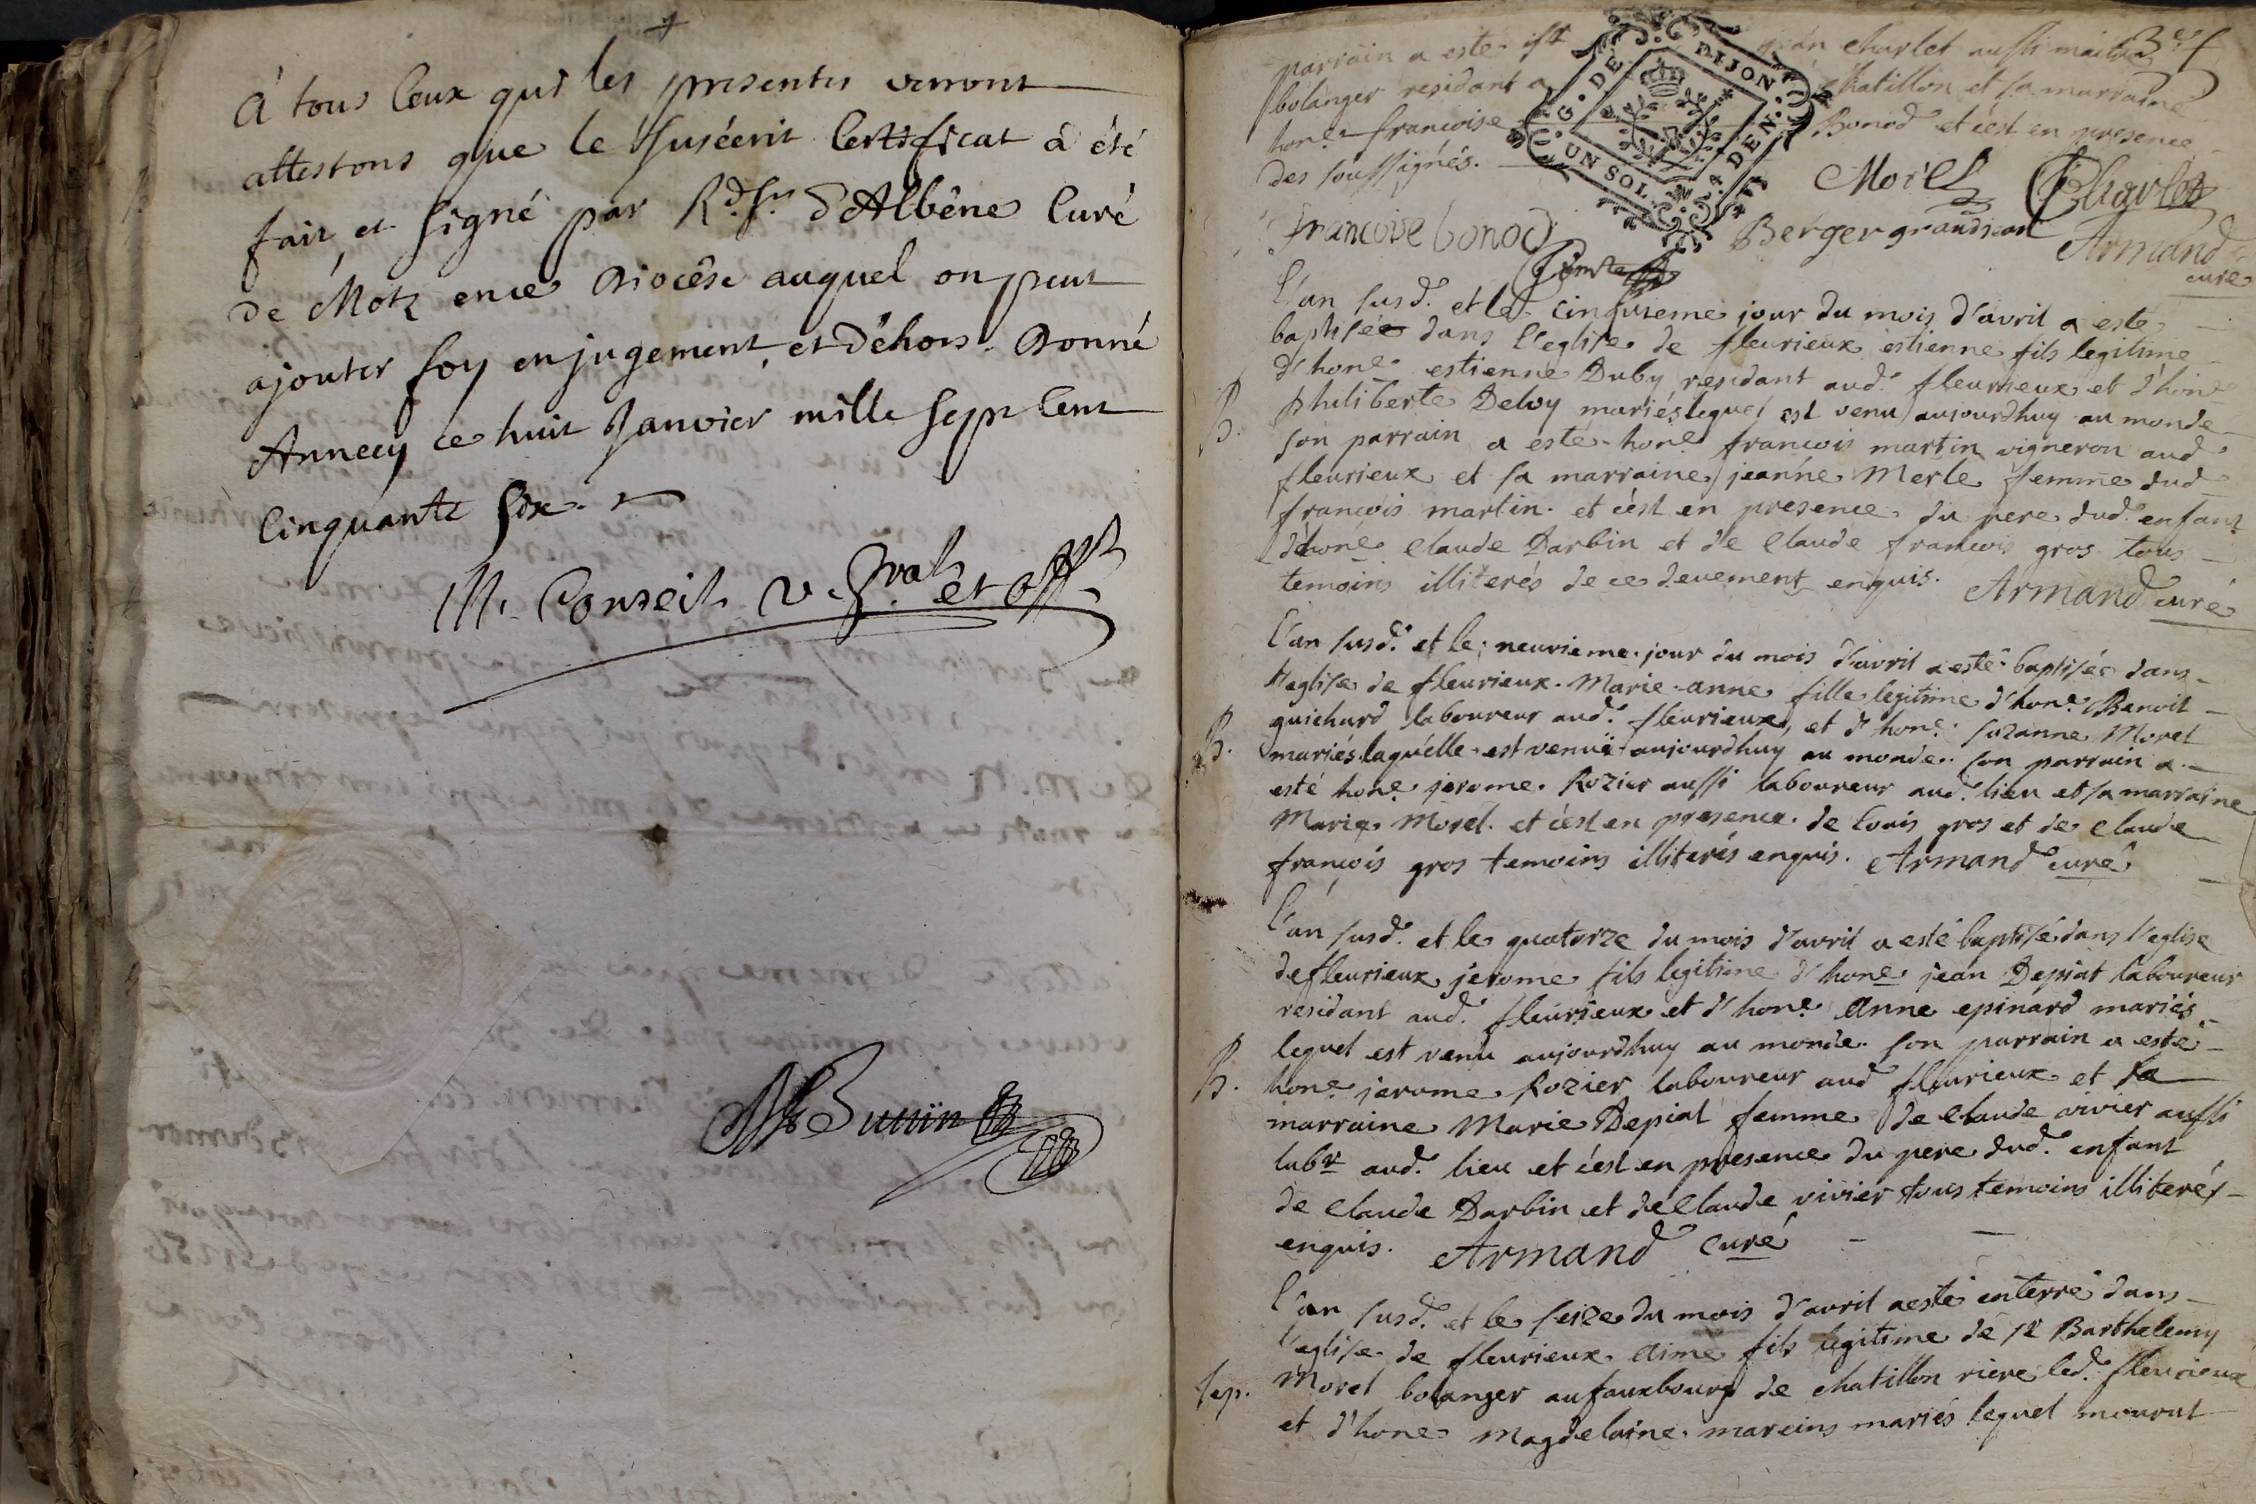 À tous Ceux qui les presentes verront
attestons que le susécrit Certificat à été
fait et signé par Rd. Sr. d'Albêne Curé
de Motz en ce Diocêse auquel on peut
ajouter foy en jugement et déhors. Donné
Annecy ce huit Janvier mille sept Cent
Cinquante six.
M. Conseil v. Gnal et offl
parrain a esté jean charlet aussi maitre
bolanger residant a chatillon et sa marraine
hone francoise Bonod et c'est en presence
des soussignés.
Morel Charlet
francoise bonod Berger grandjean Armand
curé
l'an susd. et le cinquieme jour du mois d'avril a esté
baptisée dans l'eglise de fleurieux estienne fils legitime
d'hone estienne Duby residant aud. fleurieux et d'hone
philiberte Delvy mariés lequel est venu aujourdhuy au monde
B.
son parrain a esté hone francois martin vigneron aud
fleurieux et sa marraine jeanne Merle femme dud
francois martin. et c'est en presence du pere dud. enfant
d'hone claude Darbin et de claude francois gros tous
temoins illiterés de ce deuement enquis. Armand curé
l'an susd. et le neuvieme jour du mois d'avril a esté baptisée dans
l'eglise de fleurieux. Marie anne fille legitime d'hone Benoit
guichard laboureur aud. fleurieux, et d'hone suzanne Morel
B. mariés laquélle est venuë aujourdhuy au monde. son parrain a
esté hone jerome Rozier aussi laboureur aud. lieu et sa marraine
Marie Morel. et c'est en presence de louis gros et de claude
françois gros temoins illiterés enquis. Armand curé
l'an susd. et le quatorze du mois d'avril a esté baptisé dans l'eglise
de fleurieux jerome fils legitime d'hone jean Depiat laboureur
residant aud. fleurieux et d'hone Anne epinard mariés
lequel est venu aujourdhuy au monde. son parrain a esté
B. hone jerome Rozier laboureur aud fleurieux et sa
marraine Marie Depiat femme de claude vivier aussi
labr aud. lieu et c'est en presence du pere dud. enfant
de claude Darbin et de claude vivier tous temoins illiterés
enquis. Armand curé
l'an susd. et le seize du mois d'avril a esté enterré dans
l'eglise de fleurieux Aimé fils legitime de sr Barthelemy
sep. Morel bolanger au fauxbourg de chatillon riere led. fleurieux
et d'hone Magdelaine mareins mariés lequel mourut
G. DE DIJON
UN SOL 4 DEN.